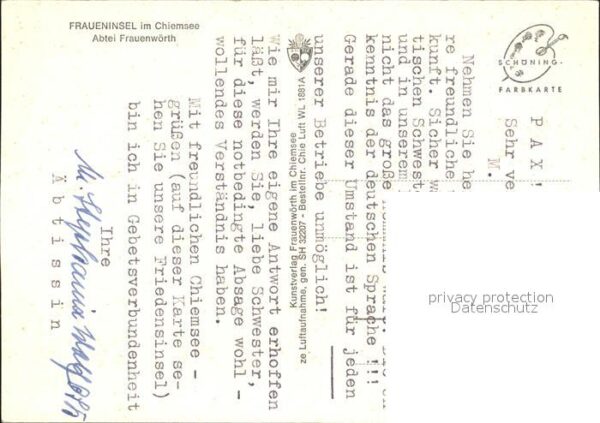 FRAUENINSEL im Chiemsee
Abtei Frauenwörth
SCHÖNING-
FARBKARTE
Kunstverlag Frauenwörth im Chiemsee
zie Luftaufnahme, gen. SH 32207 - Bestellnr. Chie Luft WL 1881A
PAX!
Sehr ve
M.
Nehmen Sie he
re freundliche
kunft. Sicher w
tischen Schweste
und in unserem
nicht das große
kenntnis der deutschen Sprache !!!
Gerade dieser Umstand ist für jeden
unserer Betriebe unmöglich!
Wie mir Ihre eigene Antwort erhoffen
läßt, werden Sie, liebe Schwester,
für diese notbedingte Absage wohl -
wollendes Verständnis haben.
Mit freundlichen Chiemsee -
grüßen (auf dieser Karte se-
hen Sie unsere Friedensinsel)
bin ich in Gebetsverbundenheit
Ihre
M. Stephania
Äbtissin
privacy protection
Datenschutz